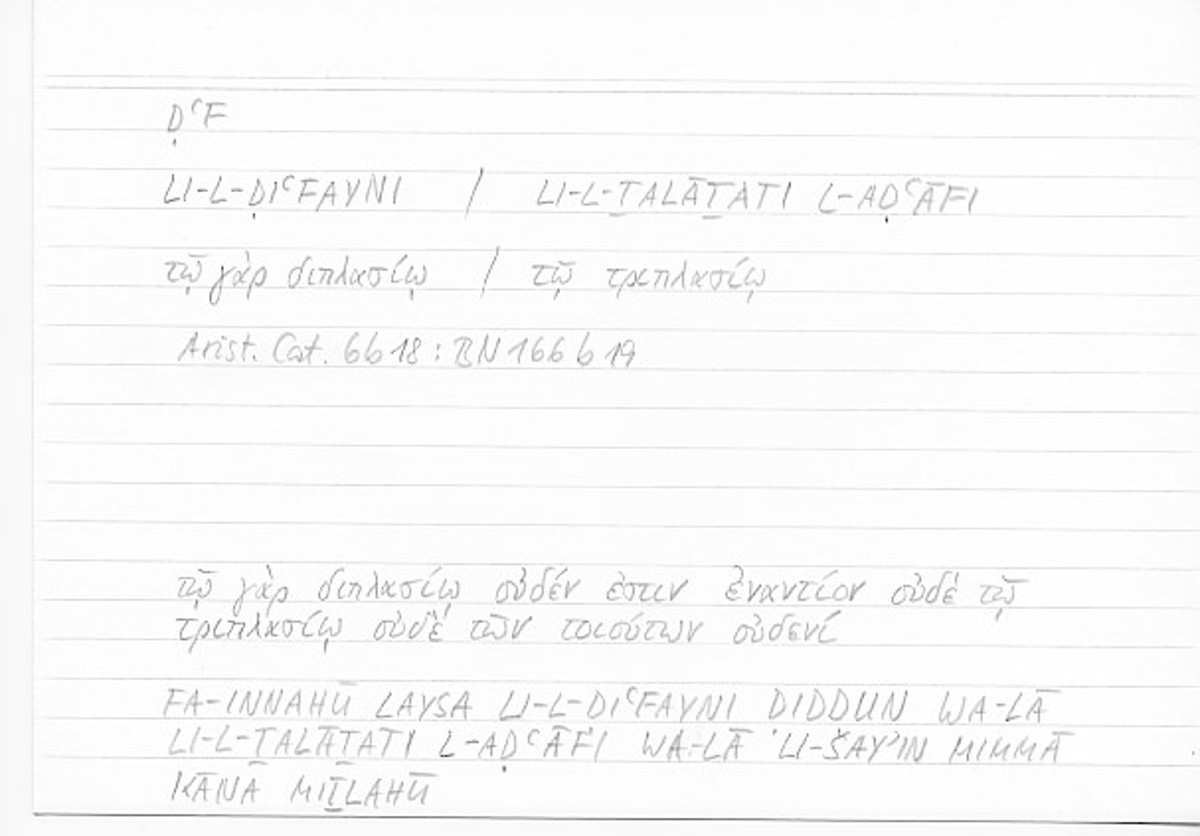 ḌʿF
LI-L-ḌIʿFAYNI / LI-L-ṮALĀṮATI L-AḌʿĀFI
τῷ γὰρ διπλασίῳ / τῷ τριπλασίῳ
Arist. Cat. 6b18: BN 166b19
τῷ γὰρ διπλασίῳ οὐδέν ἐστιν ἐναντίον οὐδὲ τῷ
τριπλασίῳ οὐδὲ τῶν τοιούτων οὐδενί
FA-INNAHŪ LAYSA LI-L-DIʿFAYNI DIDDUN WA-LĀ
LI-L-ṮALĀṮATI L-AḌʿĀFI WA-LĀ LI-ŠAYʾIN MIMMĀ
KĀNA MIṮLAHŪ